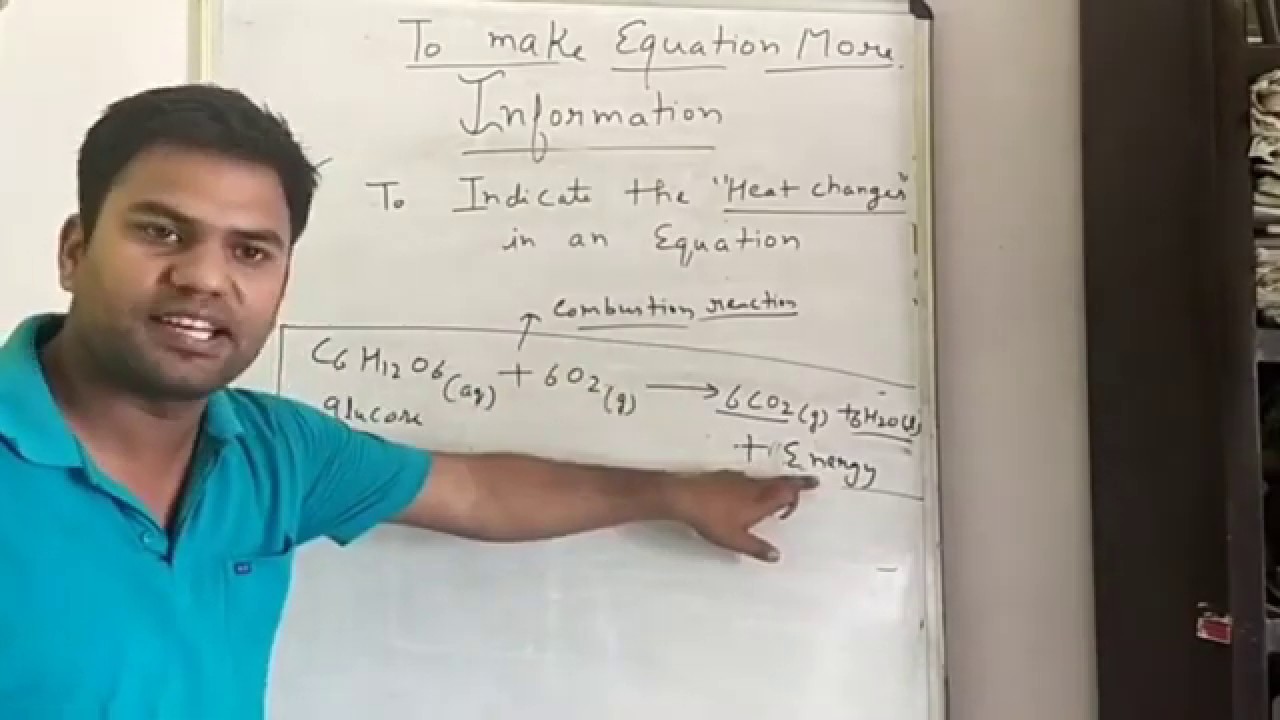 To make Equation More.
Information
To Indicate the "Heat changes"
in an Equation
Combustion reaction
C6H12O6(aq) + 6O2(g) → 6CO2(g) + 6H2O(l)
glucose
+ Energy